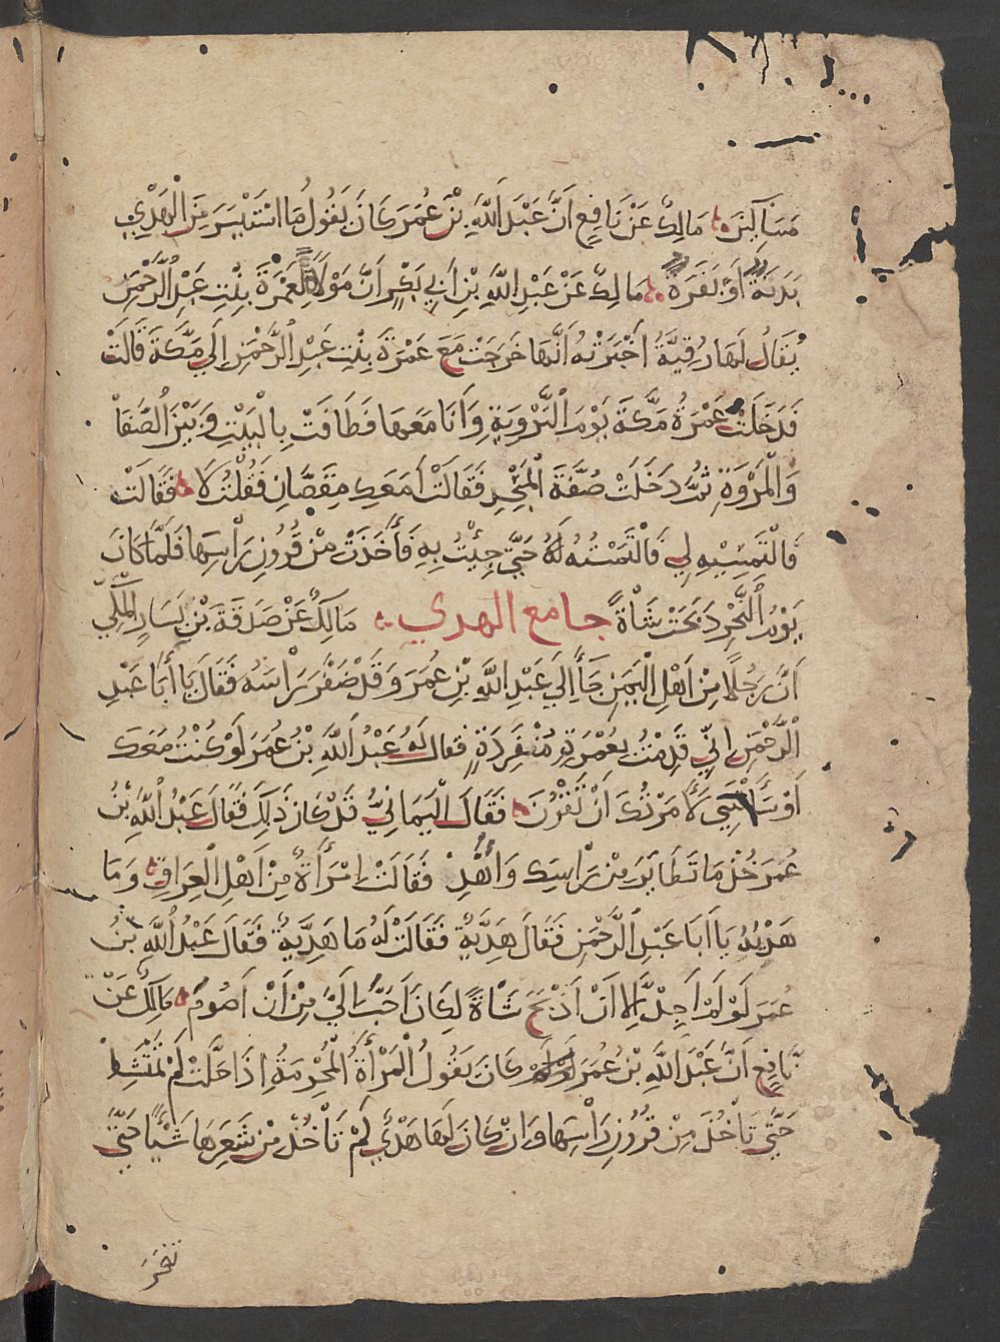 مَسَاكِينَ مَالِكٌ عَنْ نَافِعٍ اَنَّ عَبْدَ اللَّهِ بْنَ عُمَرَ كَانَ يَقُولُ مَا اسْتَيْسَرَ مِنَ الْهَدْيِ
بَدَنَةٌ اَوْ بَقَرَةٌ مَالِكٌ عَنْ عَبْدِ اللَّهِ بْنِ اَبِي بَكْرٍ اَنَّ مَوْلَاةً لِعَمْرَةَ بِنْتِ عَبْدِ الرَّحْمَنِ
يُقَالُ لَهَا رُقِيَّةُ اَخْبَرَتْهُ اَنَّهَا خَرَجَتْ مَعَ عَمْرَةَ بِنْتِ عَبْدِ الرَّحْمَنِ اِلَي مَكَّةَ قَالَتْ
فَدَخَلَتْ عَمْرَةُ مَكَّةَ يَوْمَ التَّرْوِيَةِ وَاَنَا مَعَهَا فَطَافَتْ بِالْبَيْتِ وَبَيْنَ الصَّفَا
وَالْمَرْوَةِ ثُمَّ دَخَلَتْ صُفَّةَ الْمَسْجِدِ فَقَالَتْ اَمَعَكِ مِقَصَّانِ فَقُلْتُ لَا فَقَالَتْ
فَالْتَمِسِيهِ لِي فَالْتَمَسْتُهُ لَهَا حَتَّي جِئْتُ بِهِ فَأَخَذَتْ مِنْ قُرُونِ رَاْسِهَا فَلَمَّا كَانَ
يَوْمُ النَّحْرِ ذَبَحَتْ شَاةً جامع الهدي مَالِكٌ عَنْ صَدَقَةَ بْنِ يَسَارٍ الْمَكِّيِّ
اَنَّ رَجُلًا مِنْ اَهْلِ الْيَمَنِ جَاَ اِلَي عَبْدِ اللَّهِ بْنِ عُمَرَ وَقَدْ ضَفَّرَ رَاْسَهُ فَقَالَ يَا أَبَا عَبْدِ
الرَّحْمَنِ اِنِّي قَدِمْتُ بِعُمْرَةٍ مُنْفَرِدَةٍ فقال لَهُ عَبْدُ اللَّهِ بْنُ عُمَرَ لَوْ كُنْتُ مَعَكَ
اَوْ سَأَلْتَنِي لَأَمَرْتُكَ اَنْ تُقْرِنَ فَقَالَ الْيَمَانِيُّ قَدْ كَانَ ذَلِكَ فَقَالَ عَبْدُ اللَّهِ بْنُ
عُمَرَ خُذْ مَا تَطَايَرَ مِنْ رَاْسِكَ وَاَهْدِ فَقَالَتْ امْرَأَةٌ مِنْ اَهْلِ الْعِرَاقِ وَمَا
هَدْيُهُ يَا اَبَا عَبْدِ الرَّحْمَنِ فَقَالَ هَدْيُهُ فَقَالَتْ لَهُ مَا هَدْيُهُ فَقَالَ عَبْدُ اللَّهِ بْنُ
عُمَرَ لَوْ لَمْ اَجِدْ اِلَّا اَنْ اَذْبَحَ شَاةً لَكَانَ اَحَبَّ اِلَيَّ مِنْ اَنْ اَصُومَ مَالِكٌ عَنْ
نَافِعٍ اَنَّ عَبْدَ اللَّهِ بْنَ عُمَرَ كَانَ يَقُولُ الْمَرْأَةُ الْمُحْرِمَةُ اِذَا حَلَّتْ لَمْ تَمْتَشِطْ
حَتَّي تَاْخُذَ مِنْ قُرُونِ رَاْسِهَا وَاِنْ كَانَ لَهَا هَدْيٌ لَمْ تَاْخُذْ مِنْ شَعَرِهَا شَيْاً حَتَّي
تنحَرَ